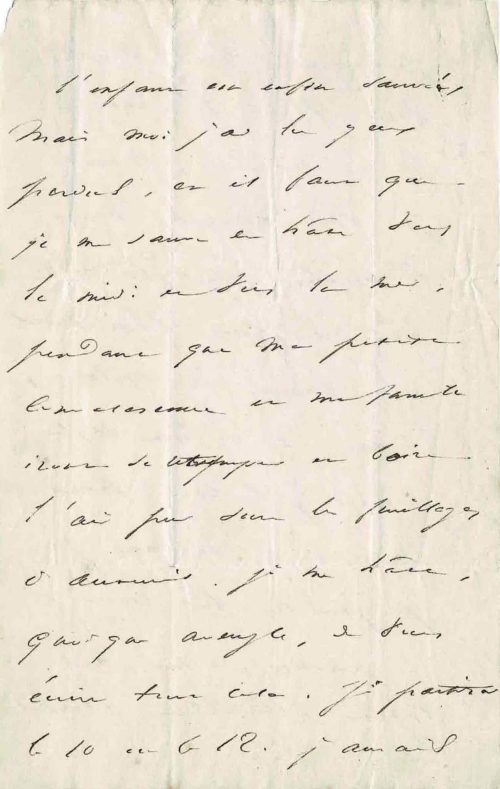 l'enfant est enfin sauvée
mais moi j'ai les yeux
perdus, et il faut que
je me sauve en hâte vers
le midi et vers la mer,
pendant que ma petite
convalescente et ma famille
iront se et boire
l'air pur sous les feuillages
d'. je me hâte,
quoique aveugle, de vous
écrire tout cela. je partirai
le 10 ou le 12. j'aurais